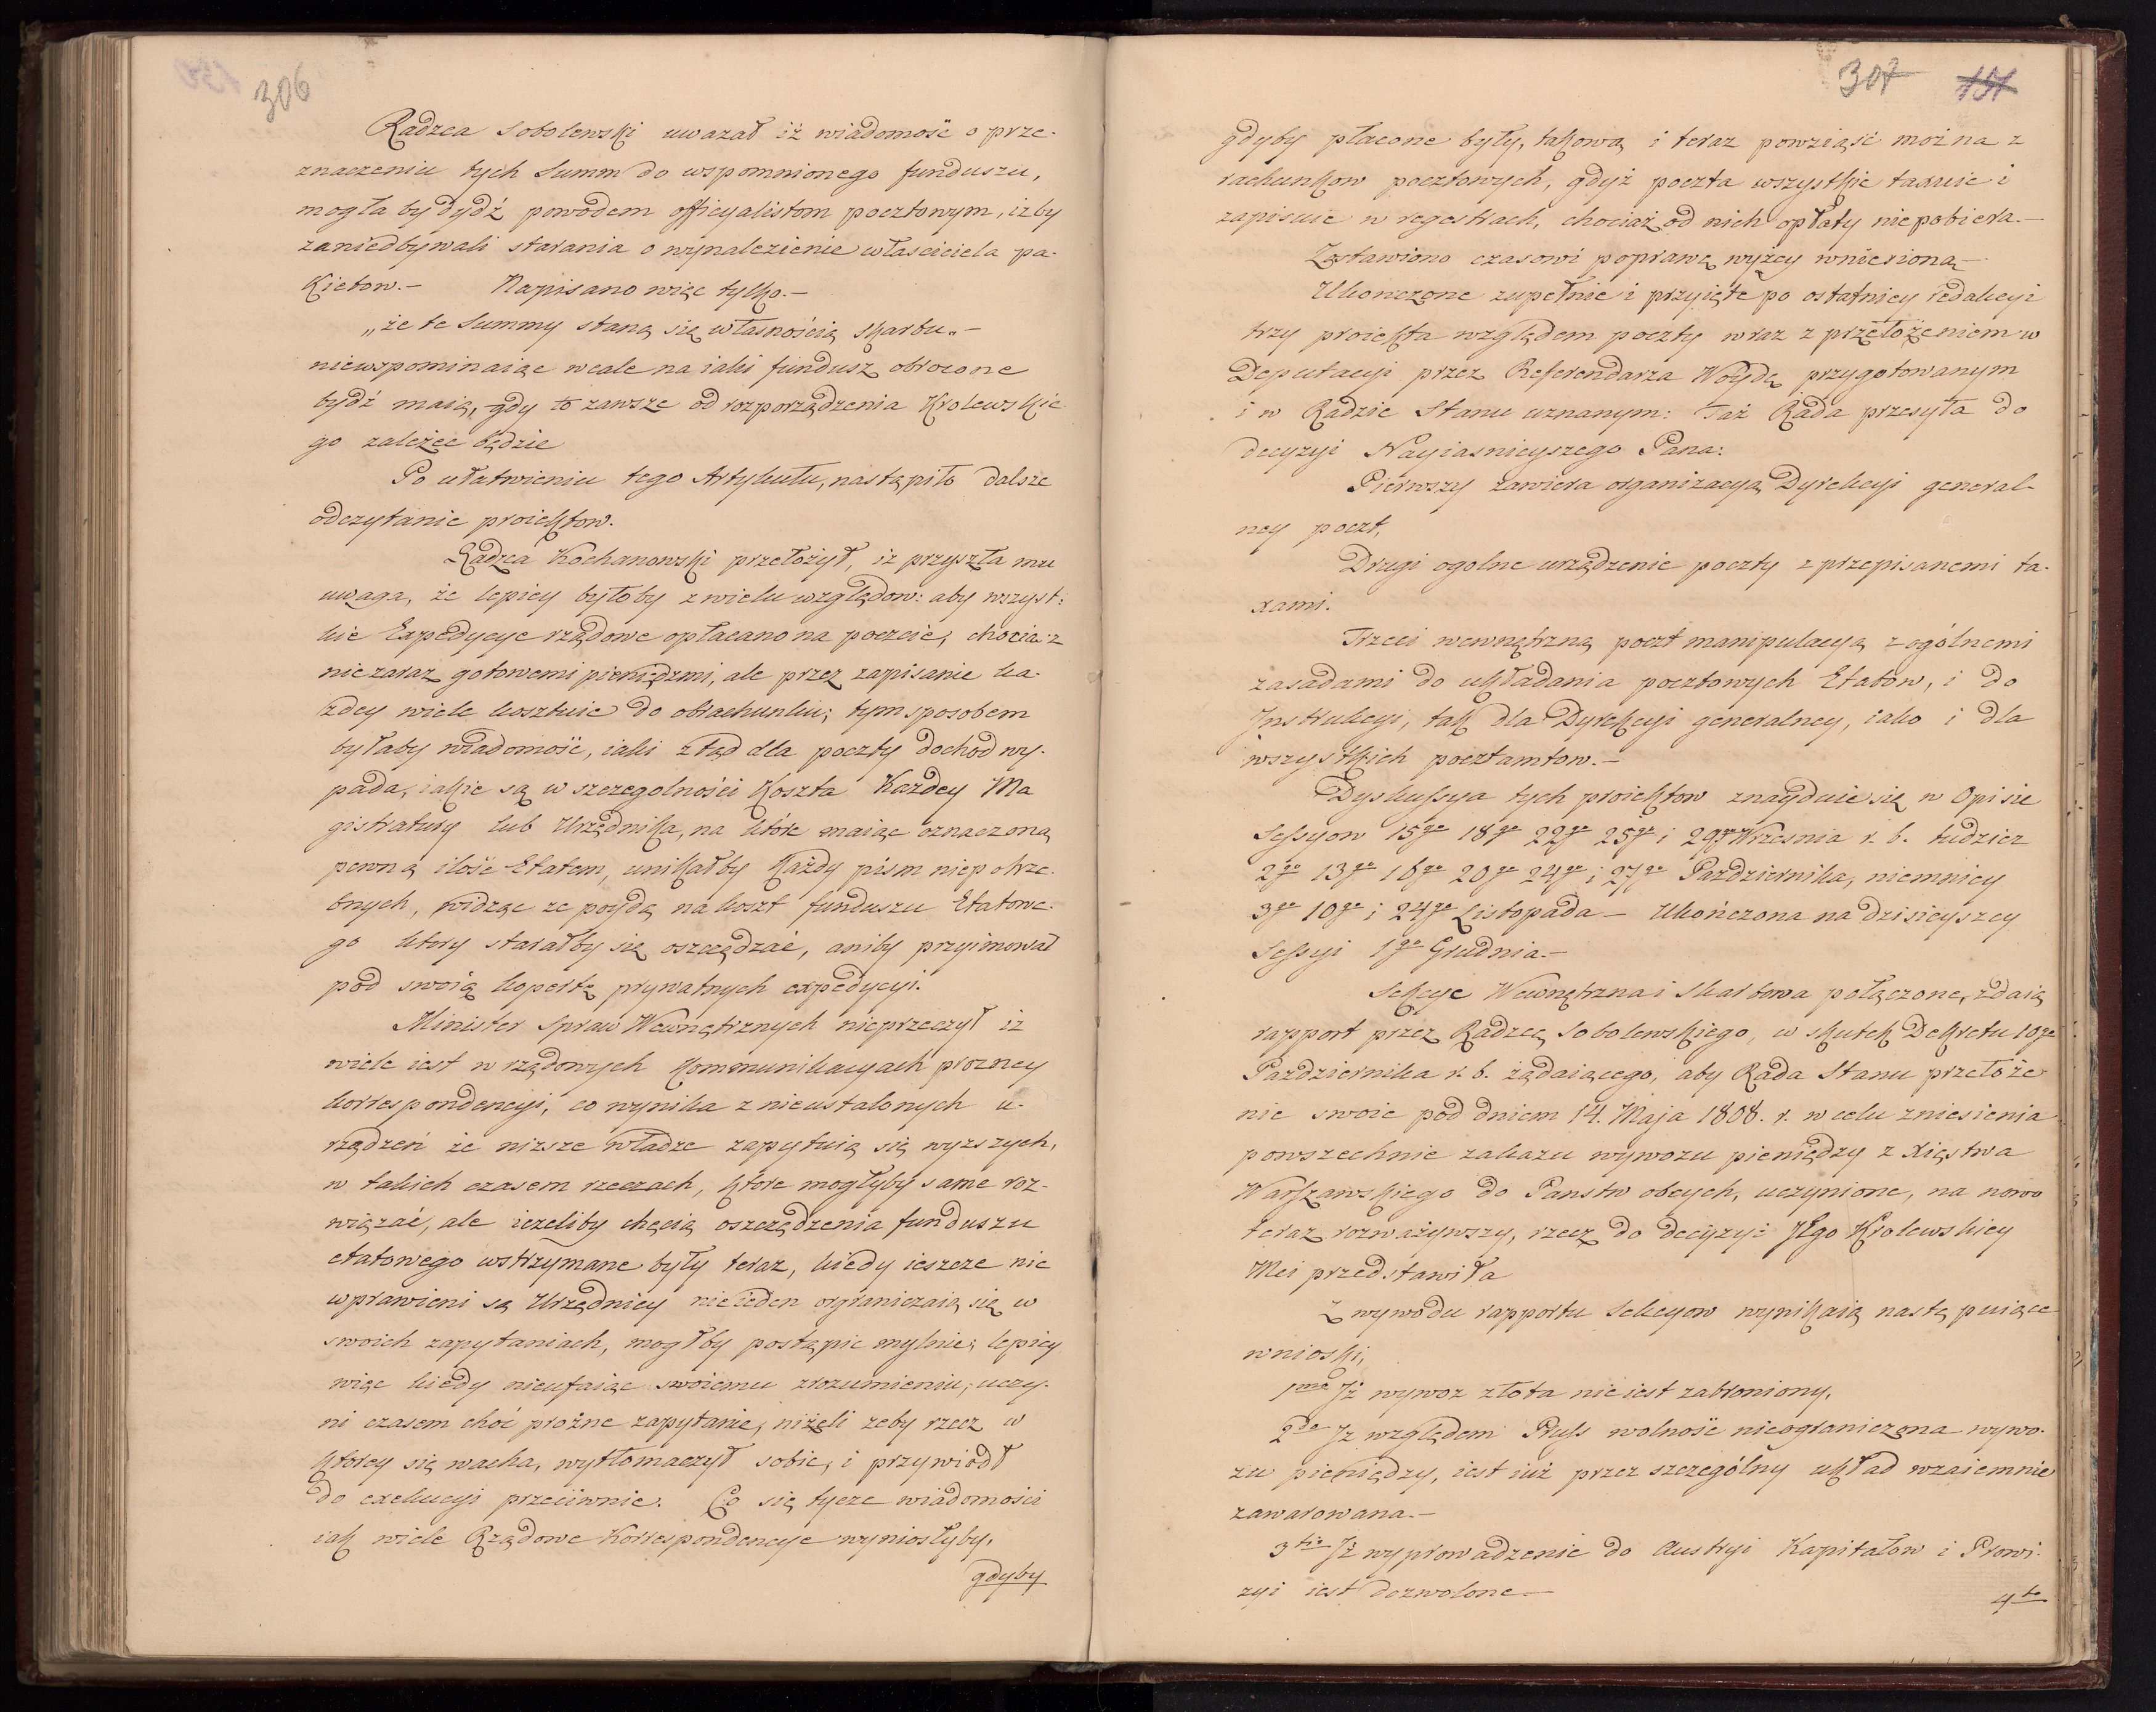 306
Radzca Sobolewski uwazał iż wiadomość o prze-
znaczeniu tych Summ do wspomnionego funduszu,
mogła by bydź powodem officyalistom pocztowym, iżby
zaniedbywali starania o wynalezienie własciciela pa-
kietow.— Napisano więc tylko.—
„że te Summy staną się własnością skarbu„—
niewspominaiąc wcale na iaki fundusz obrocone
bydź maią, gdy to zawsze od rozporządzenia Krolewskie
go zależec będzie
Po ułatwieniu tego Artykułu, nastąpiło dalsze
odczytanie proiektow.
Radzca Kochanowski przełożył, iz przyszła mu
uwaga, że lepiey byłoby z wielu względow: aby wszyst:
kie Expedycye rządowe opłacano na poczcie; chociaż
nie zaraz gotowemi pieniędzmi, ale przez zapisanie ka-
żdey wiele kosztuie do obrachunku; tym sposobem
byłaby wiadomość, iaki ztąd dla poczty dochod wy-
pada, iakie są w szczegolności koszta Każdey Ma
gistratury lub Urzędnika, na które maiąc oznaczoną
pewną ilość Etatem, unikałby każdy pism niepotrze-
bnych, widząc ze poydą na koszt funduszu Etatowe-
go ktory starałby się oszczędzać, aniby przyimował
pod swoią kopertę prywatnych expedycyi.
Minister Spraw Wewnętrznych nieprzeczył iż
wiele iest w rządowych kommunikacyach prozney
korrespondencyi, co wynika z nieustalonych u-
rządzeń że nizsze władze zapytuią się wyzszych,
w takich czasem rzeczach, ktore mogłyby same roz-
wiązać, ale iezeliby chęcią oszczędzenia funduszu
etatowego wstrzymane były teraz, kiedy ieszcze nie
wprawieni są Urzędnicy nieieden ograniczaią się w
swoich zapytaniach, mogłby postąpic mylnie; lepiey
więc kiedy nieufaiąc swoiemu zrozumieniu, uczy-
ni czasem choć prożne zapytanie, niżeli zeby rzecz w
ktorey się wacha, wytłomaczył sobie, i przywiodł
do exekucyi przeciwnie. Co się tycze wiadomości
iak wiele Rządowe Korrespondencye wyniosłyby,
gdyby
307 151
gdyby płacone były, takową i teraz powziąść można z
rachunkow pocztowych, gdyż poczta wszystkie taxuie i
zapisuie w regestrach, chociaż od nich opłaty niepobiera.—
Zostawiono czasowi poprawę wyżey wniesioną—
Ukonczone zupełnie i przyięte po ostatniey redakcyi
trzy proiekta względem poczty wraz z przełożeniem w
Deputacyi przez Referendarza Woydę przygotowanym
i w Radzie Stanu uznanym: Taż Rada przesyła do
decyzyi Nayiasnieyszego Pana:
Pierwszy zawiera organizacyą Dyrekcyi general-
ney poczt,
Drugi ogolne urządzenie poczty z przepisanemi ta-
xami.
Trzeci wewnętrzną poczt manipulacyą z ogólnemi
zasadami do układania pocztowych Etatow, i do
Instrukcyi, tak dla Dyrekcyi generalney, iako i dla
wszystkich pocztamtow.—
Dyskussya tych proiektow znayduie się w Opisie
Sessyow 15go 18go 22go 25go i 29go Wrzesnia r. b. tudziez
2go 13go 16go 20go 24go i 27go Pazdziernika, niemniey
3go 10go i 24go Listopada— Ukończona na dzisieyszey
Sessyi 1go Grudnia.—
Sekcye Wewnętrzna i Skarbowa połączone, zdaią
rapport przez Radzcę Sobolewskiego, w skutek Dekretu 10go
Pazdziernika r. b. żądaiącego, aby Rada Stanu przełoże
nie swoie pod dniem 14. Maja 1808. r. w celu zniesienia
powszechnie zakazu wywozu pieniędzy z xięstwa
Warszawskiego do Panstw obcych, uczynione, na nowo
teraz rozważywszy, rzecz do decyzyi JEgo Krolewskiey
Mci przedstawiła
Z wywodu rapportu Sekcyow wynikaią następuiące
wnioski,
1mo Iż wywoz złota nie iest zabroniony,
2do Iz względem Pruss wolność nieograniczona wywo-
zu pieniędzy, iest iuż przez szczególny układ wzaiemnie
zawarowana.—
3tio Iż wyprowadzenie do Austryi Kapitałow i Prowi-
zyi iest dozwolone—
4to